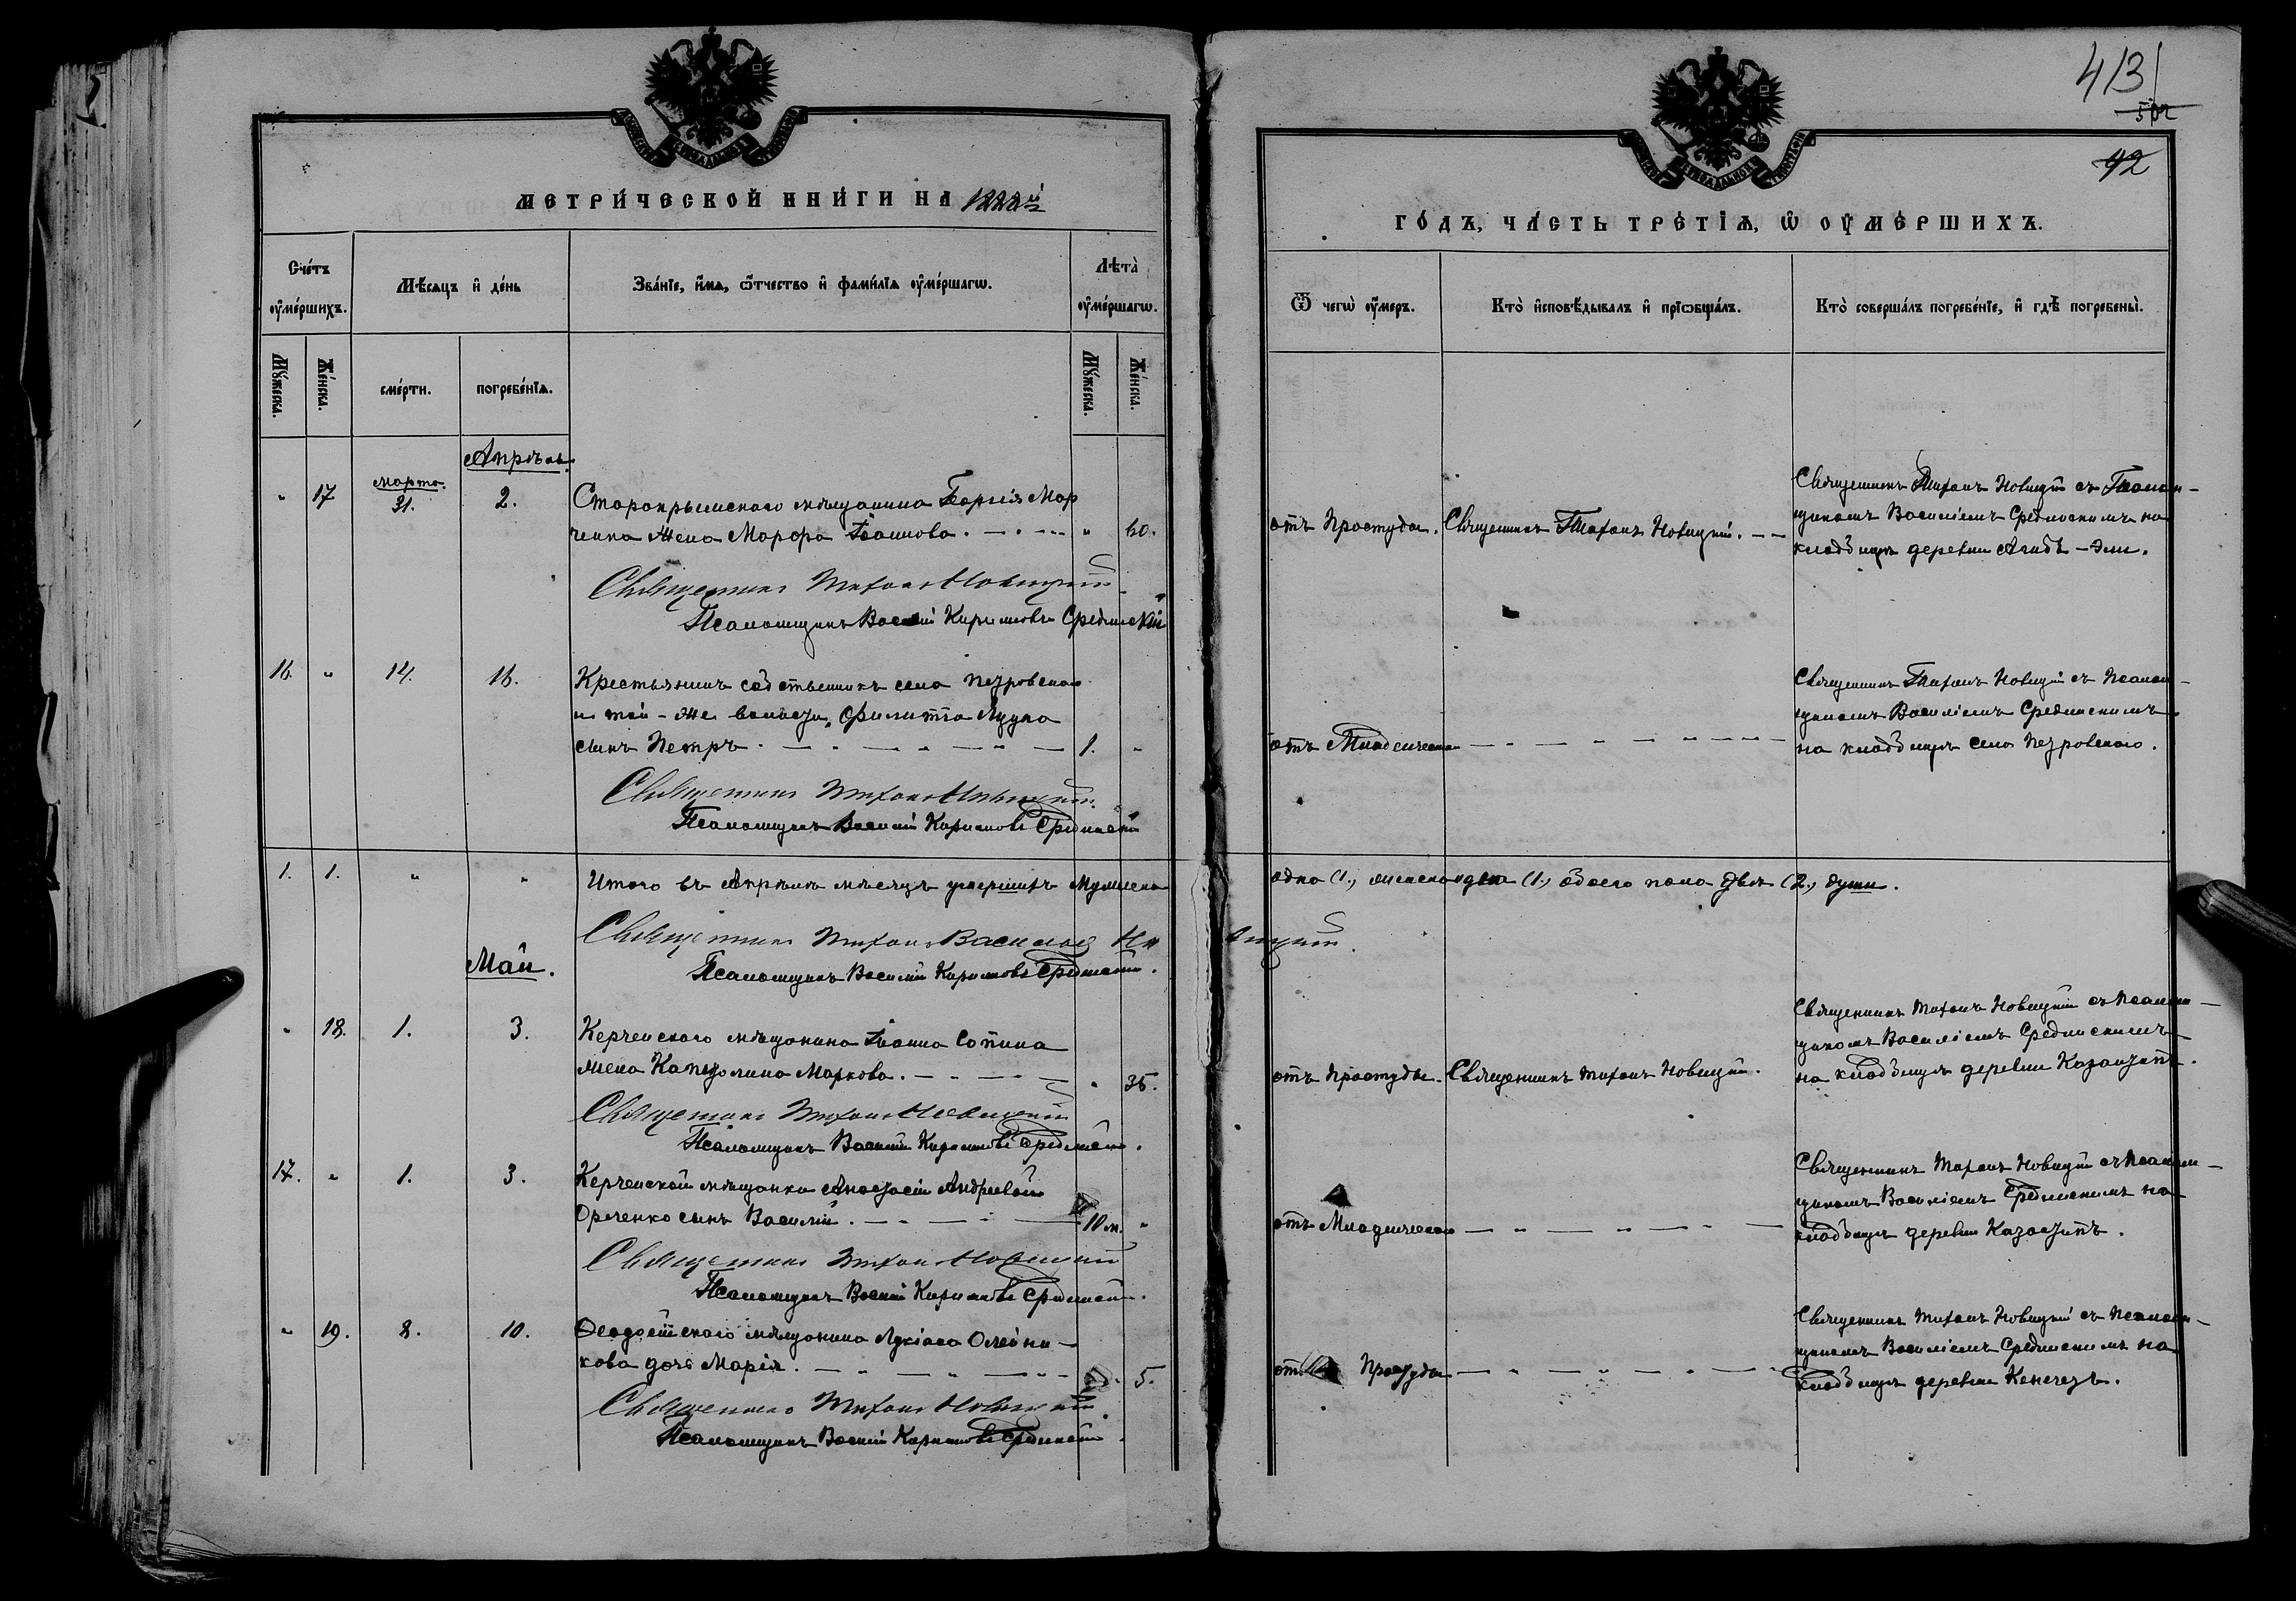 413
502
42
МЕТРИ́ЧЕСКОЙ КНИ́ГИ НА 1888й
ГО́ДЪ, ЧА́СТЬ ТРЕ́ТІѦ, Ѡ҆ ОУ҆МЕ́РШИХЪ.
Сче́тъ оу҆ме́ршихъ.
Мѣ́сѧцъ и҆ де́нь
Зва́нїе, и҆́мѧ, ѻ҆́тчество и҆ фами́лїѧ оу҆ме́ршагѡ.
Лѣ́та̀ оу҆ме́ршагѡ.
Ѿ чегѡ̀ оу҆́меръ.
Кто̀ и҆сповѣ́дывалъ и҆ прїѡбща́лъ.
Кто̀ соверша́лъ погребе́нїе, и҆ гдѣ̀ погребены̀.
Мꙋ́жеска.
Же́нска.
сме́рти.
погребе́нїѧ.
Мꙋ́жеска.
Же́нска.
Апрѣль.
" 17 марта 31. 2.
Старокрымскаго мѣщанина Георгія Мар
ченка жена Марфа Іоаннова. " 60.
отъ Простуды. Священникъ Тихонъ Новицкій.
Священникъ Тихонъ Новицкій съ Псалом-
щикомъ Василіемъ Срединскимъ на
кладбищѣ деревни Агибъ-Эли.
Священникъ Тихонъ Новицкій
Псаломщикъ Василій Кирилловъ Срединскій
16. " 14. 16.
Крестьянинъ собственникъ села Петровскаго
и той-же волости, Филиппа Луука
сынъ Петръ. 1. "
отъ Младенческой
Священникъ Тихонъ Новицкій съ Псалом-
щикомъ Василіемъ Срединскимъ
на кладбищѣ села Петровскаго.
Священникъ Тихонъ Новицкій.
Псаломщикъ Василій Кирилловъ Срединскій
1. 1. " "
Итого въ Апрѣлѣ мѣсяцѣ умершихъ Мужеска одна (1.) женска одна (1.) обоего пола двѣ (2.) души.
Священникъ Тихонъ Васильевъ Новицкій.
Псаломщикъ Василій Кирилловъ Срединскій.
Май.
" 18. 1. 3.
Керченскаго мѣщанина Іоанна Сопина
жена Капитолина Маркова. " 35.
отъ Простуды. Священникъ Тихонъ Новицкій.
Священникъ Тихонъ Новицкій съ Псалом-
щикомъ Василіемъ Срединскимъ
на кладбищѣ деревни Казантипъ.
Священникъ Тихонъ Новицкій
Псаломщикъ Василій Кирилловъ Срединскій.
17. " 1. 3.
Керченской мѣщанки Анастасіи Андреевой
Орченко сынъ Василій. 10 м. "
отъ Младенческой
Священникъ Тихонъ Новицкій съ Псалом-
щикомъ Василіемъ Срединскимъ на
кладбищѣ деревни Казантипъ.
Священникъ Тихонъ Новицкій
Псаломщикъ Василій Кирилловъ Срединскій.
" 19. 8. 10.
Ѳеодосійскаго мѣщанина Лукіана Олейни-
кова дочь Марія. 5.
отъ Простуды
Священникъ Тихонъ Новицкій съ Псалом-
щикомъ Василіемъ Срединскимъ на
кладбищѣ деревни Кенегезъ.
Священникъ Тихонъ Новицкій
Псаломщикъ Василій Кирилловъ Срединскій.